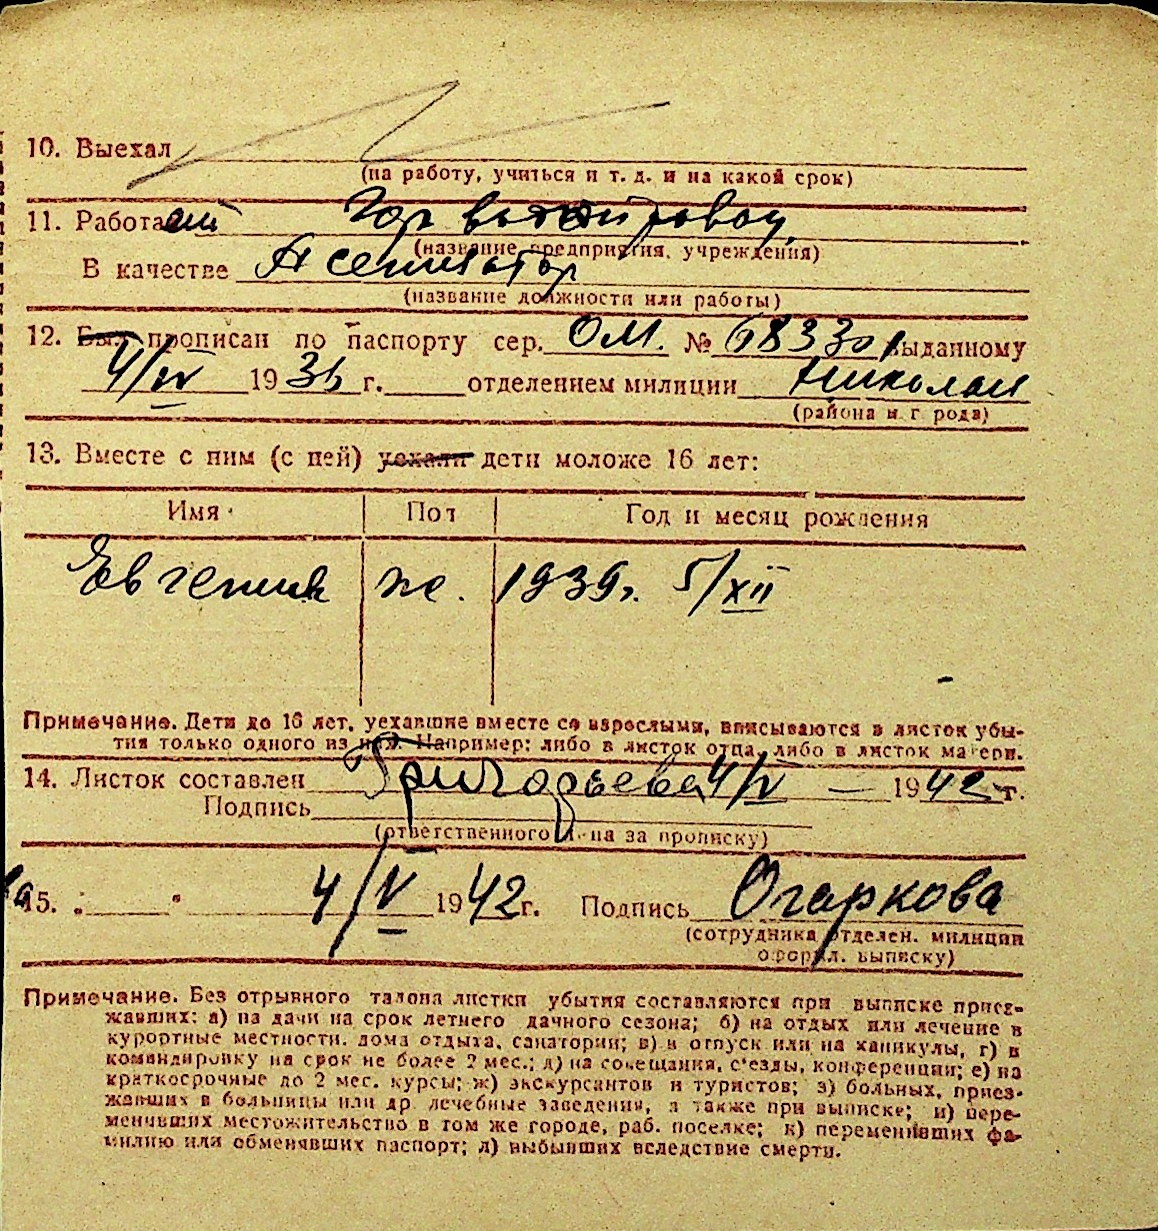 10. Выехал
(на работу, учиться и т. д. и на какой срок)
11. Работа
(название предприятия, учреждения)
В качестве Ассенизатор
(название должности или работы)
12. Был прописан по паспорту сер. ОМ. № 68330 выданному
4/IV 1936 г. отделением милиции Николаи
(района и г рода)
13. Вместе с ним (с ней) уехали дети моложе 16 лет:
Имя Пол Год и месяц рождения
Евгения ж. 1939г. 5/XII
Примечание. Дети до 16 лет, уехавшие вместе со взрослыми, вписываются в листок убы-
тия только одного из них. Например: либо в листок отца, либо в листок матери.
14. Листок составлен Григорьева 4/V — 1942 г.
Подпись
(ответственного лица за прописку)
15. „ " 4/V 1942 г. Подпись Огаркова
(сотрудника отделен. милиции
оформл. выписку)
Примечание. Без отрывного талона листки убытия составляются при выписке приез-
жавших: а) на дачи на срок летнего дачного сезона; б) на отдых или лечение в
курортные местности, дома отдыха, санатории; в) в отпуск или на каникулы, г) в
командировку на срок не более 2 мес.; д) на совещания, с'езды, конференции; е) на
краткосрочные до 2 мес. курсы; ж) экскурсантов и туристов; з) больных, приез-
жавших в больницы или др. лечебные заведения, а также при выписке; и) пере-
менивших местожительство в том же городе, раб. поселке; к) переменивших фа-
милию или обменявших паспорт; л) выбывших вследствие смерти.